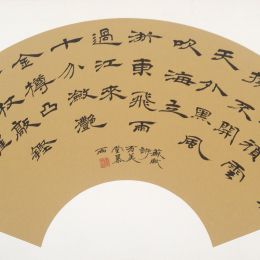 頑雲
撥不開
天外黑風
吹海立
浙東飛雨
過江來
十分瀲灩
金樽凸
杖敲鏗
蘇軾
詩
有美
堂暴
雨